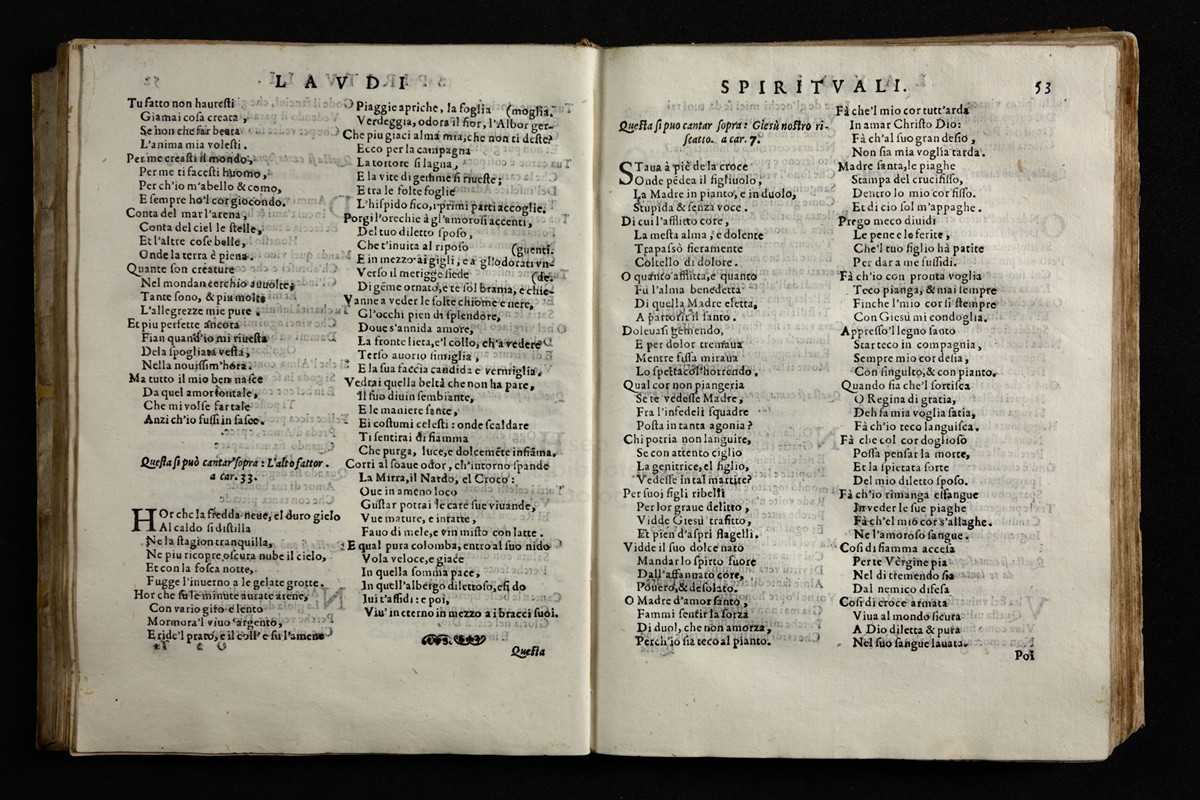 LAVDI
Tu fatto non hauresti
Giamai cosa creata,
Se non che far beata
L'anima mia volesti.
Per me creasti il mondo,
Per me ti facesti huomo,
Per ch'io m'abello & como,
E sempre ho'l cor giocondo.
Conta del mar l'arena,
Conta del ciel le stelle,
Et l'altre cose belle,
Onde la terra è piena.
Quante son creature
Nel mondan cerchio auuolte,
Tante sono, & piu molte
L'allegrezze mie pure.
Et piu perfette ancora
Fian quand'io mi riuesta
Dela spogliata vesta,
Nella nouissim'hora.
Ma tutto il mio ben nasce
Da quel amor fontale,
Che mi volse far tale
Anzi ch'io fussi in fasce.
Questa si può cantar sopra: L'alto fattor.
a car. 33.
HOr che la fredda neue, el duro gielo
Al caldo si distilla
Ne la stagion tranquilla,
Ne piu ricopre oscura nube il cielo,
Et con la fosca notte,
Fugge l'inuerno a le gelate grotte.
Hor che fu le minute aurate arene,
Con vario giro e lento
Mormora'l viuo argento,
E ride'l prato, e il coll' e su l'amene
Piaggie apriche, la foglia (moglia.
Verdeggia, odora il fior, l'Albor ger-
Che piu giaci alma mia, che non ti deste?
Ecco per la campagna
La tortore si lagna,
E la vite di gemme si riueste;
E tra le folte foglie
L'hispido fico, i primi parti accoglie.
Porgi l'orechie à gl'amorosi accenti,
Del tuo diletto sposo,
Che t'inuita al riposo (guenti.
E in mezzo ai gigli, e a gl'odorati vn-
Verso il merigge siede (de.
Di gême ornato, e te sol brama, e chie-
Vanne a veder le folte chiome e nere,
Gl'occhi pien di splendore,
Doue s'annida amore,
La fronte lieta, e'l collo, ch'a vedere
Terso auorio simiglia,
E la sua faccia candida e vermiglia.
Vedrai quella beltà che non ha pare,
Il suo diuin sembiante,
E le maniere sante,
Ei costumi celesti: onde scaldare
Ti sentirai di fiamma
Che purga, luce, e dolcemête infiâma.
Corri al soaue odor, ch'intorno spande
La Mirra, il Nardo, el Croco:
Oue in ameno loco
Gustar potrai le care sue viuande,
Vue mature, e intatte,
Fauo di mele, e vin misto con latte.
E qual pura colomba, entro al suo nido
Vola veloce, e giace
In quella somma pace,
In quell'albergo dilettoso, efi do
Iui t'affid: e poi,
Viu' in eterno in mezzo a i bracci suoi.
Questa
SPIRITVALI.
53
Questa si puo cantar sopra: Giesù nostro ri-
scatto. a car. 7.
STaua à piè de la croce
Onde pêdea il figliuolo,
La Madre in pianto, e in duolo,
Stupida & senza voce.
Di cui l'afflitto core,
La mesta alma, e dolente
Trapassò fieramente
Coltello di dolore.
O quanto afflitta, e quanto
Fù l'alma benedetta
Di quella Madre eletta,
A partorir il santo.
Doleuasi gemendo,
E per dolor tremaua
Mentre fissa miraua
Lo spettacol' horrendo.
Qual cor non piangeria
Se te vedesse Madre,
Fra l'infedeli squadre
Posta in tanta agonia?
Chi potria non languire,
Se con attento ciglio
La genitrice, el figlio,
Vedesse in tal martire?
Per suoi figli ribelli
Per lor graue delitto,
Vidde Giesù trafitto,
Et pien d'aspri flagelli.
Vidde il suo dolce nato
Mandar lo spirto fuore
Dall'affannato core,
Pouero, & desolato.
O Madre d'amor fonte,
Fammi sentir la forza
Di duol, che non amorza,
Perch'io sia teco al pianto.
Fà che'l mio cor tutt'arda
In amar Christo Dio:
Fà ch'al suo gran desio,
Non sia mia voglia tarda.
Madre santa, le piaghe
Stampa del crucifisso,
Dentro lo mio cor fisso.
Et di cio sol m'appaghe.
Prego meco diuidi
Le pene e le ferite,
Che'l tuo figlio hà patite
Per dar a me sussidi.
Fà ch'io con pronta voglia
Teco pianga, & mai sempre
Finche l'mio cor si stempre
Con Giesù mi condoglia.
Appresso'l legno santo
Star teco in compagnia,
Sempre mio cor desia,
Con singulto, & con pianto.
Quando fia che'l sortisca
O Regina di gratia,
Deh fa mia voglia satia,
Fà ch'io teco languisca.
Fà che col cor doglioso
Possa pensar la morte,
Et la spietata sorte
Del mio diletto sposo.
Fà ch'io rimanga essangue
In veder le sue piaghe
Fà ch'el mio cor s'allaghe.
Ne l'amoroso sangue.
Cosi di fiamma accesa
Per te Vergine pia
Nel di tremendo sia
Dal nemico difesa
Cosi di croce armata
Viua al mondo sicura
A Dio diletta & pura
Nel suo sangue lauata.
Poi